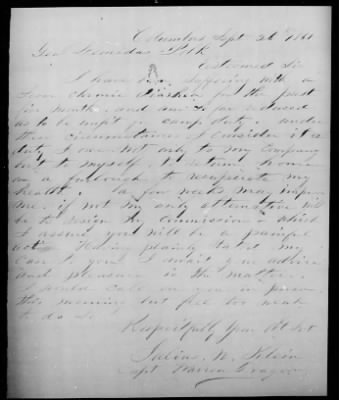 Columbus Sept 26th 1861
Genl Leonidas Polk
Esteemed Sir
I have been suffering with a
from chronic diarrhea for the past
six months, and am so far reduced
as to be unfit for camp duty. under
these circumstances I consider it a
duty I owe not only to my Company
but to myself to return home
on a furlough to recuperate my
health. a few weeks may improve
me, if not my only alternative will
be to resign my Commission which
I assure you will be a painful
act. Having plainly stated my
case to you I await your advice
and pleasure in the matter.
I would call on you in person
this morning but feel too weak
to do so.
Respectfully Your Obt Svt
Julius N. Klein
Capt Warren Dragoons